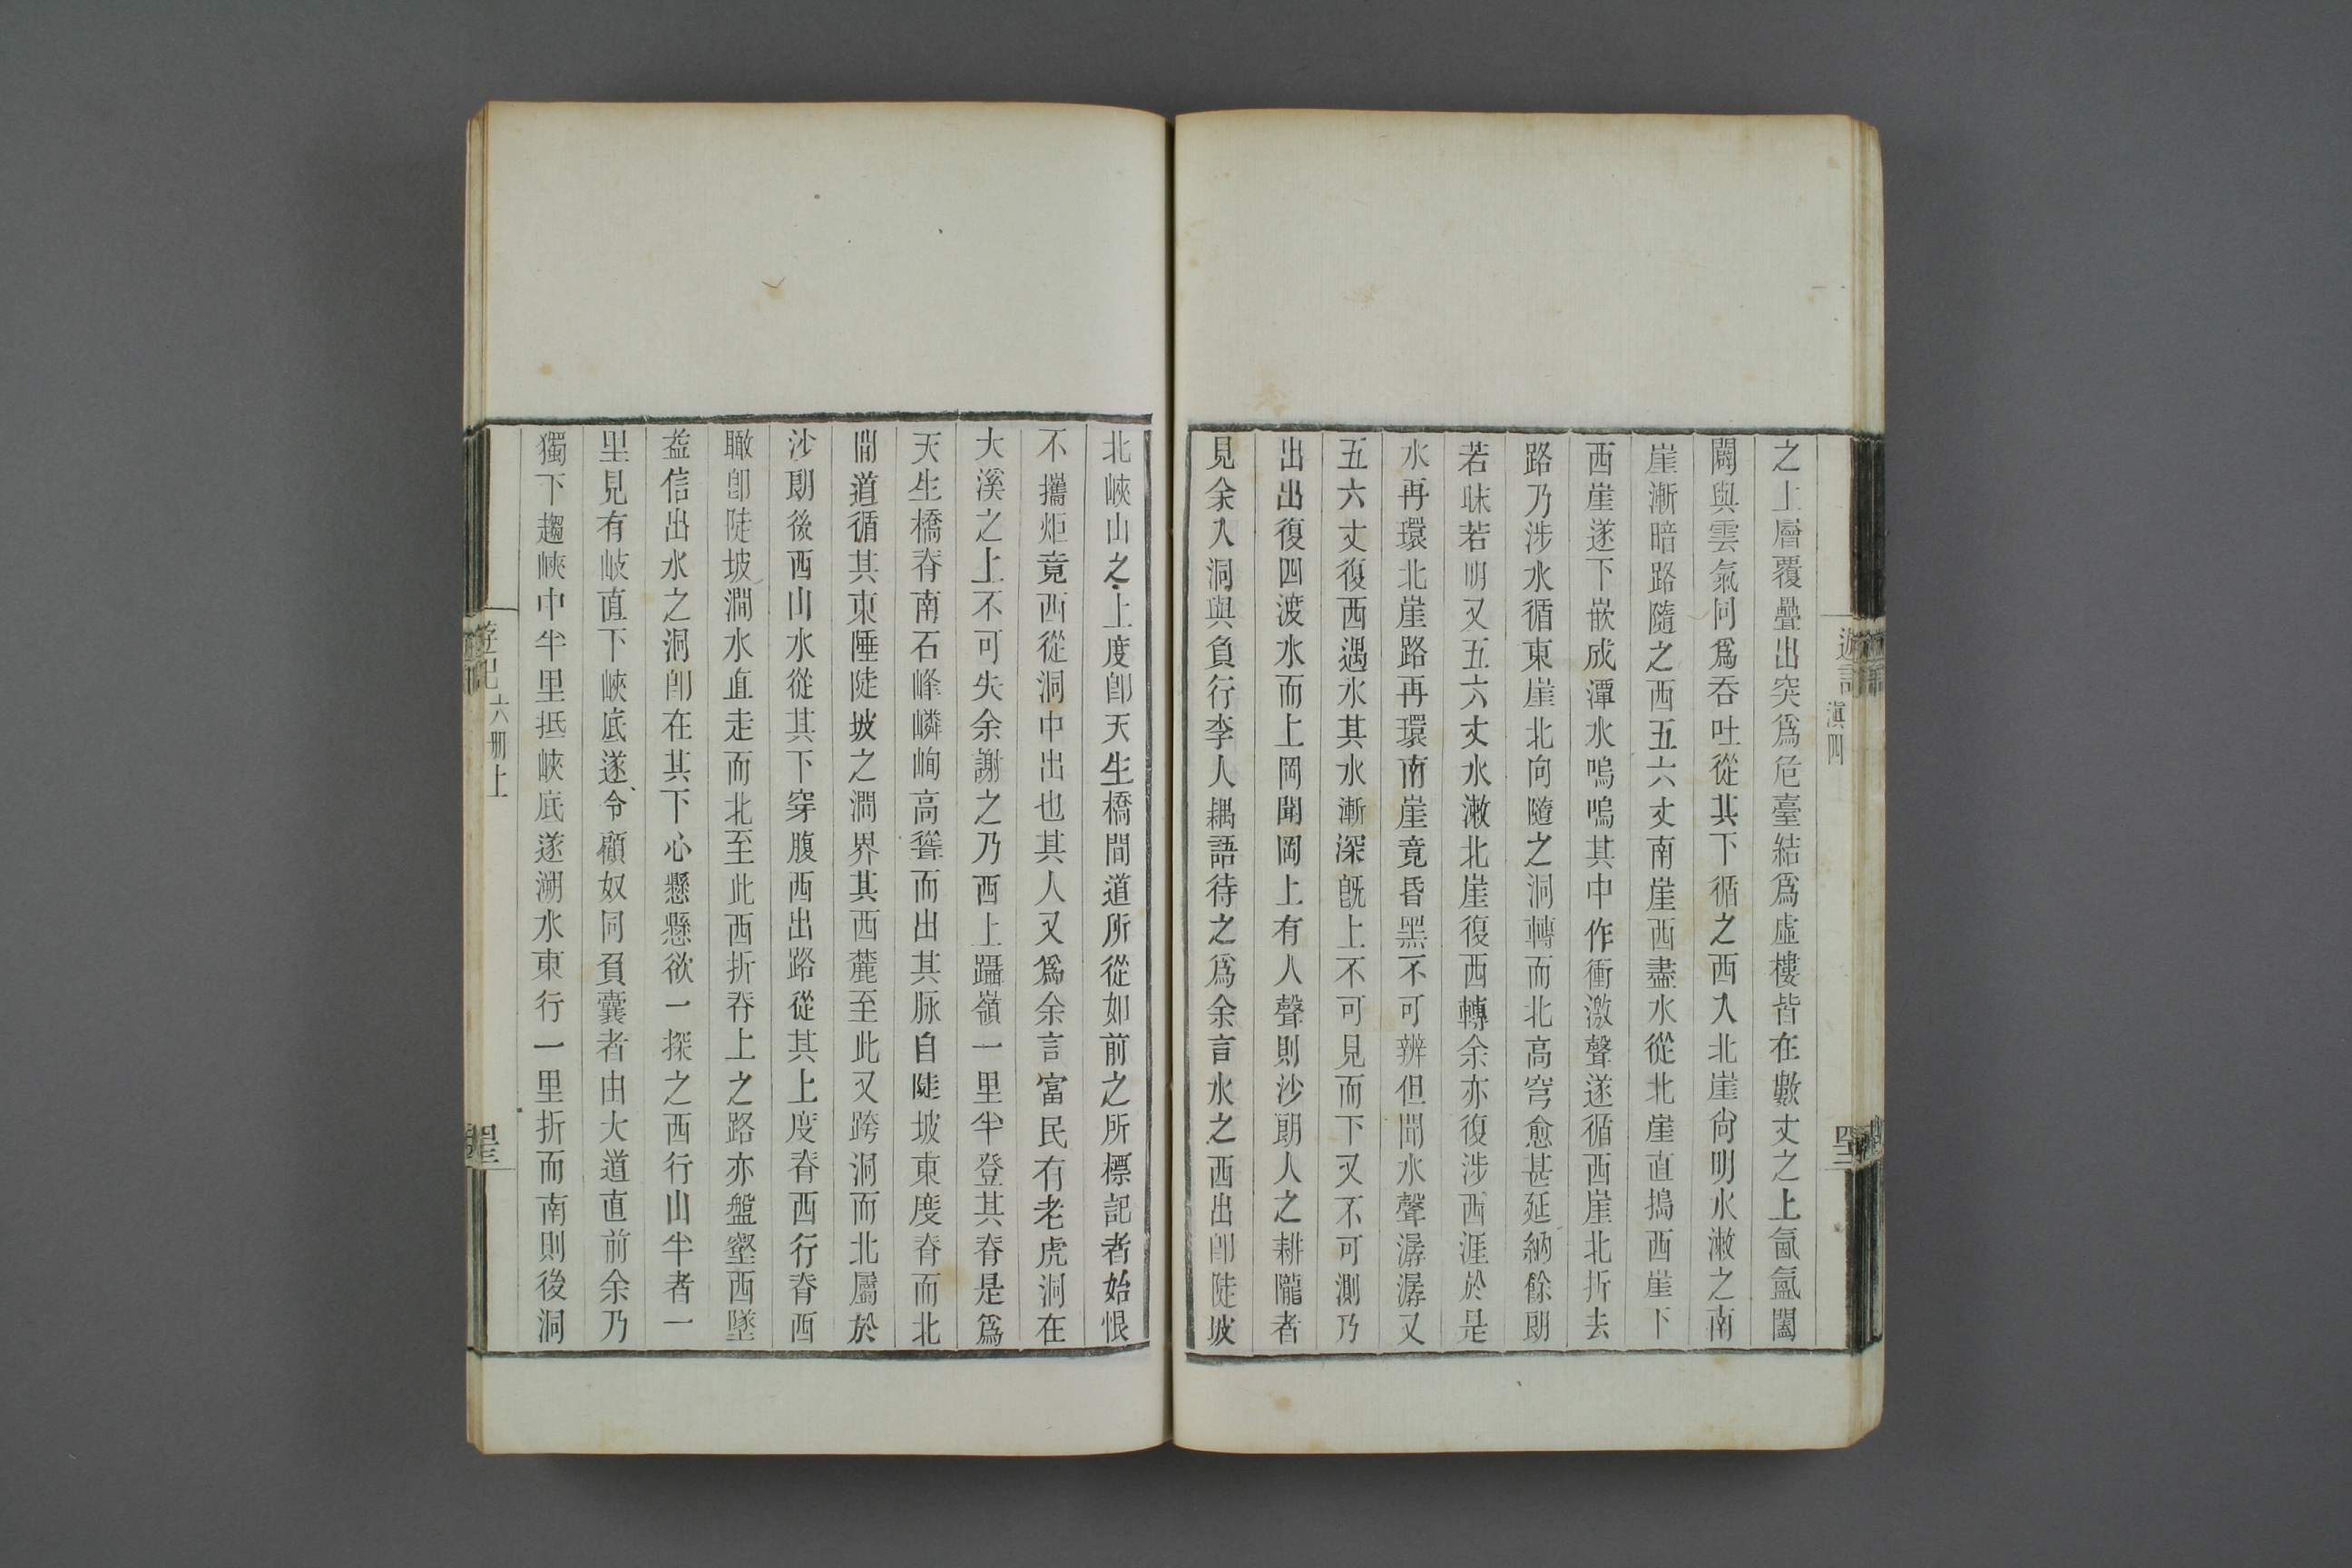 遊記
滇四
之上層覆疊出突爲危臺結爲虛樓皆在數丈之上氤氳闔
闢與雲氣同爲吞吐從其下循之西入北崖尙明水漱之南
崖漸暗路隨之西五六丈南崖西盡水從北崖直搗西崖下
西崖遂下嵌成潭水嗚嗚其中作衝激聲遂循西崖北折去
路乃涉水循東崖北向隨之洞轉而北高穹愈甚延納餘朗
若昧若明又五六丈水漱北崖復西轉余亦復涉西涯於是
水再環北崖路再環南崖竟昏黑不可辨但聞水聲潺潺又
五六丈復西遇水其水漸深旣上不可見而下又不可測乃
出出復四渡水而上岡聞岡上有人聲則沙朗人之耕隴者
見余入洞與負行李人耦語待之爲余言水之西出卽陡坡
北峽山之上度卽天生橋間道所從如前之所標記者始恨
不攜炬竟西從洞中出也其人又爲余言富民有老虎洞在
大溪之上不可失余謝之乃西上躡嶺一里半登其脊是爲
天生橋脊南石峰嶙峋高聳而出其脉自陡坡東度脊而北
間道循其東陲陡坡之澗界其西麓至此又跨洞而北屬於
沙朗後西山水從其下穿腹西出路從其上度脊西行脊西
瞰卽陡坡澗水直走而北至此西折脊上之路亦盤壑西墜
益信出水之洞卽在其下心懸懸欲一探之西行山半者一
里見有岐直下峽底遂令顧奴同負囊者由大道直前余乃
獨下趨峽中半里抵峽底遂溯水東行一里折而南則後洞
遊記
六册上